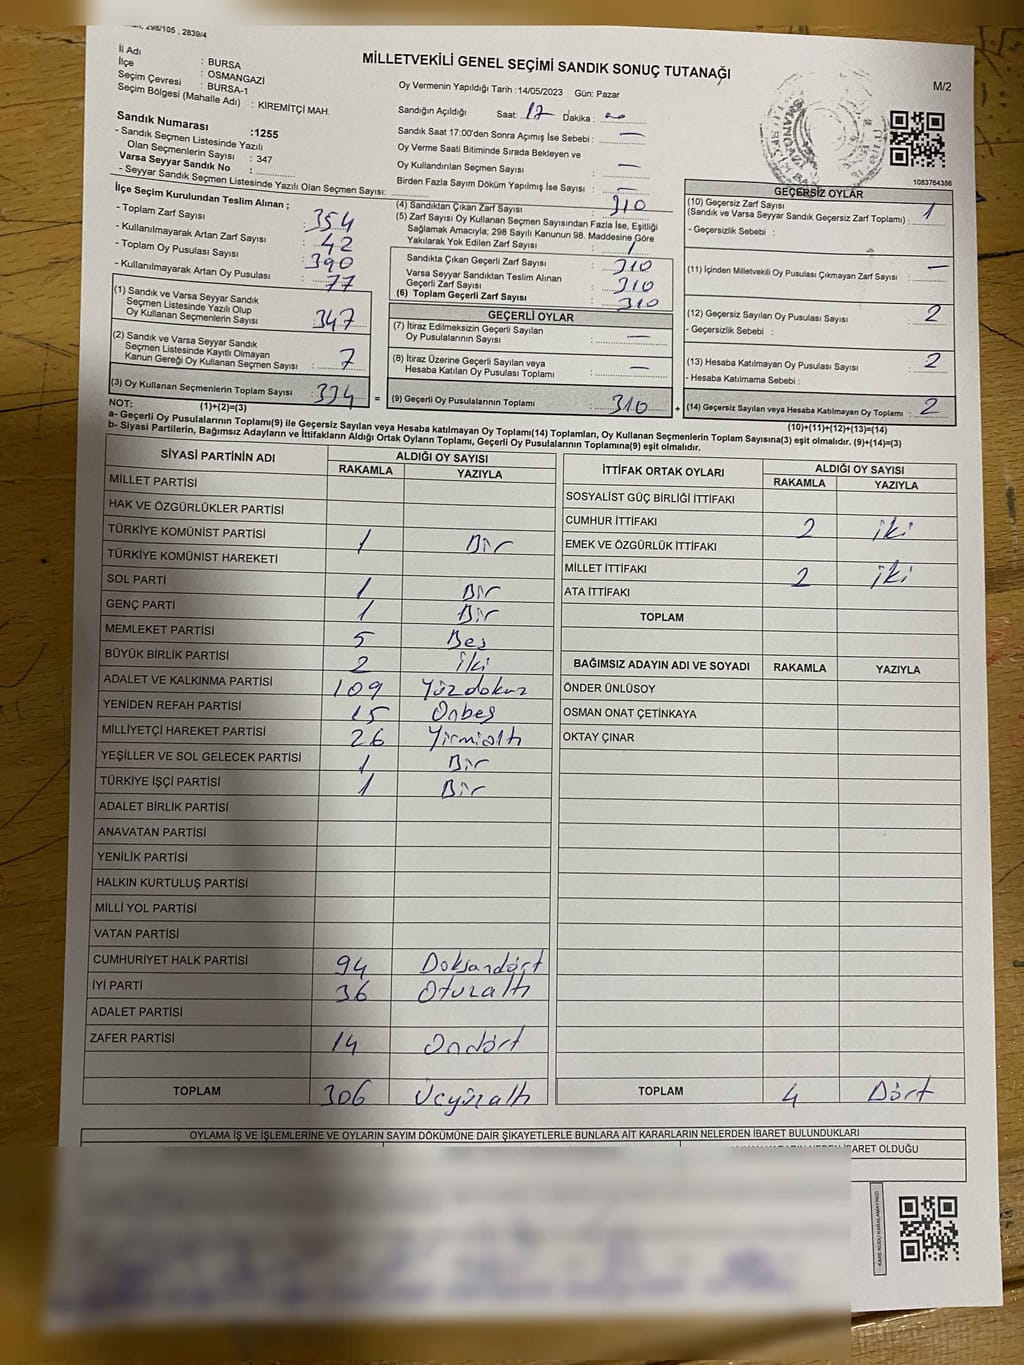 298/105 , 2839/4
İl Adı : BURSA
İlçe : OSMANGAZİ
Seçim Çevresi : BURSA-1
Seçim Bölgesi (Mahalle Adı) : KİREMİTÇİ MAH.
MİLLETVEKİLİ GENEL SEÇİMİ SANDIK SONUÇ TUTANAĞI
M/2
Oy Vermenin Yapıldığı Tarih :14/05/2023 Gün: Pazar
Sandığın Açıldığı Saat: 17 Dakika :
Sandık Saat 17:00'den Sonra Açımış İse Sebebi : —
Oy Verme Saati Bitiminde Sırada Bekleyen ve
Oy Kullandırılan Seçmen Sayısı : —
Birden Fazla Sayım Döküm Yapılmış İse Sayısı : —
1083764386
Sandık Numarası :1255
- Sandık Seçmen Listesinde Yazılı
Olan Seçmenlerin Sayısı : 347
Varsa Seyyar Sandık No :
- Seyyar Sandık Seçmen Listesinde Yazılı Olan Seçmen Sayısı:
İlçe Seçim Kurulundan Teslim Alınan ;
- Toplam Zarf Sayısı : 354
- Kullanılmayarak Artan Zarf Sayısı : 42
- Toplam Oy Pusulası Sayısı : 390
- Kullanılmayarak Artan Oy Pusulası : 77
(1) Sandık ve Varsa Seyyar Sandık
Seçmen Listesinde Yazılı Olup
Oy Kullanan Seçmenlerin Sayısı : 347
(2) Sandık ve Varsa Seyyar Sandık
Seçmen Listesinde Kayıtlı Olmayan
Kanun Gereği Oy Kullanan Seçmen Sayısı : 7
(3) Oy Kullanan Seçmenlerin Toplam Sayısı :
(4) Sandıktan Çıkan Zarf Sayısı : 310
(5) Zarf Sayısı Oy Kullanan Seçmen Sayısından Fazla İse, Eşitliği
Sağlamak Amacıyla; 298 Sayılı Kanunun 98. Maddesine Göre
Yakılarak Yok Edilen Zarf Sayısı : 1
Sandıkta Çıkan Geçerli Zarf Sayısı : 310
Varsa Seyyar Sandıktan Teslim Alınan
Geçerli Zarf Sayısı : 310
(6) Toplam Geçerli Zarf Sayısı : 310
GEÇERLİ OYLAR
(7) İtiraz Edilmeksizin Geçerli Sayılan
Oy Pusulalarının Sayısı : —
(8) İtiraz Üzerine Geçerli Sayılan veya
Hesaba Katılan Oy Pusulası Toplamı : —
= (9) Geçerli Oy Pusulalarının Toplamı : 310
GEÇERSİZ OYLAR
(10) Geçersiz Zarf Sayısı
(Sandık ve Varsa Seyyar Sandık Geçersiz Zarf Toplamı) : 1
- Geçersizlik Sebebi :
(11) İçinden Milletvekili Oy Pusulası Çıkmayan Zarf Sayısı : —
(12) Geçersiz Sayılan Oy Pusulası Sayısı : 2
- Geçersizlik Sebebi :
(13) Hesaba Katılmayan Oy Pusulası Sayısı : 2
- Hesaba Katılmama Sebebi :
+ (14) Geçersiz Sayılan veya Hesaba Katılmayan Oy Toplamı : 2
NOT: (1)+(2)=(3) (10)+(11)+(12)+(13)=(14)
a- Geçerli Oy Pusulalarının Toplamı(9) ile Geçersiz Sayılan veya Hesaba katılmayan Oy Toplamı(14) Toplamları, Oy Kullanan Seçmenlerin Toplam Sayısına(3) eşit olmalıdır. (9)+(14)=(3)
b- Siyasi Partilerin, Bağımsız Adayların ve İttifakların Aldığı Ortak Oyların Toplamı, Geçerli Oy Pusulalarının Toplamına(9) eşit olmalıdır.
SİYASİ PARTİNİN ADI ALDIĞI OY SAYISI
RAKAMLA YAZIYLA
MİLLET PARTİSİ
HAK VE ÖZGÜRLÜKLER PARTİSİ
TÜRKİYE KOMÜNİST PARTİSİ 1 Bir
TÜRKİYE KOMÜNİST HAREKETİ
SOL PARTİ 1 Bir
GENÇ PARTİ 1 Bir
MEMLEKET PARTİSİ 5 Beş
BÜYÜK BİRLİK PARTİSİ 2 İki
ADALET VE KALKINMA PARTİSİ 109 Yüzdokuz
YENİDEN REFAH PARTİSİ 15 Onbeş
MİLLİYETÇİ HAREKET PARTİSİ 26 Yirmialtı
YEŞİLLER VE SOL GELECEK PARTİSİ 1 Bir
TÜRKİYE İŞÇİ PARTİSİ 1 Bir
ADALET BİRLİK PARTİSİ
ANAVATAN PARTİSİ
YENİLİK PARTİSİ
HALKIN KURTULUŞ PARTİSİ
MİLLİ YOL PARTİSİ
VATAN PARTİSİ
CUMHURİYET HALK PARTİSİ 94 Doksandört
İYİ PARTİ 36 Otuzaltı
ADALET PARTİSİ
ZAFER PARTİSİ 14 Ondört
TOPLAM 306 Üçyüzaltı
İTTİFAK ORTAK OYLARI ALDIĞI OY SAYISI
RAKAMLA YAZIYLA
SOSYALİST GÜÇ BİRLİĞİ İTTİFAKI
CUMHUR İTTİFAKI 2 iki
EMEK VE ÖZGÜRLÜK İTTİFAKI
MİLLET İTTİFAKI 2 iki
ATA İTTİFAKI
TOPLAM
BAĞIMSIZ ADAYIN ADI VE SOYADI RAKAMLA YAZIYLA
ÖNDER ÜNLÜSOY
OSMAN ONAT ÇETİNKAYA
OKTAY ÇINAR
TOPLAM 4 Dört
OYLAMA İŞ VE İŞLEMLERİNE VE OYLARIN SAYIM DÖKÜMÜNE DAİR ŞİKAYETLERLE BUNLARA AİT KARARLARIN NELERDEN İBARET BULUNDUKLARI
İBARET OLDUĞU
KARE KODU KARALAMAYINIZ!